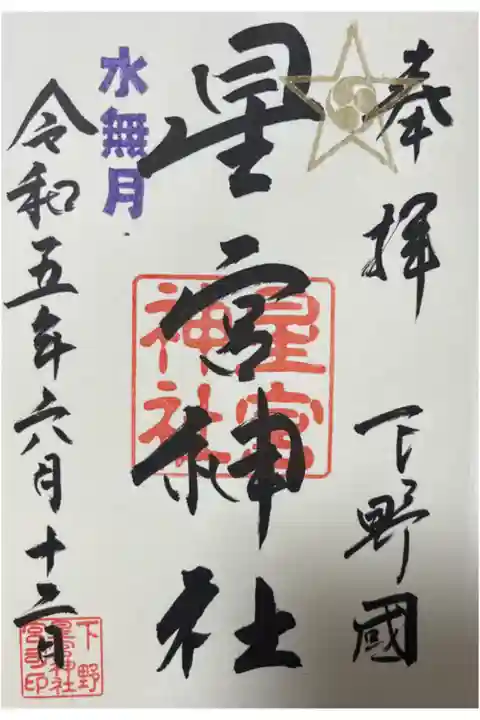 奉拝 下野國
星宮神社
星宮
神社
水無月
令和五年六月十二日
下野
星宮神社
宮司印